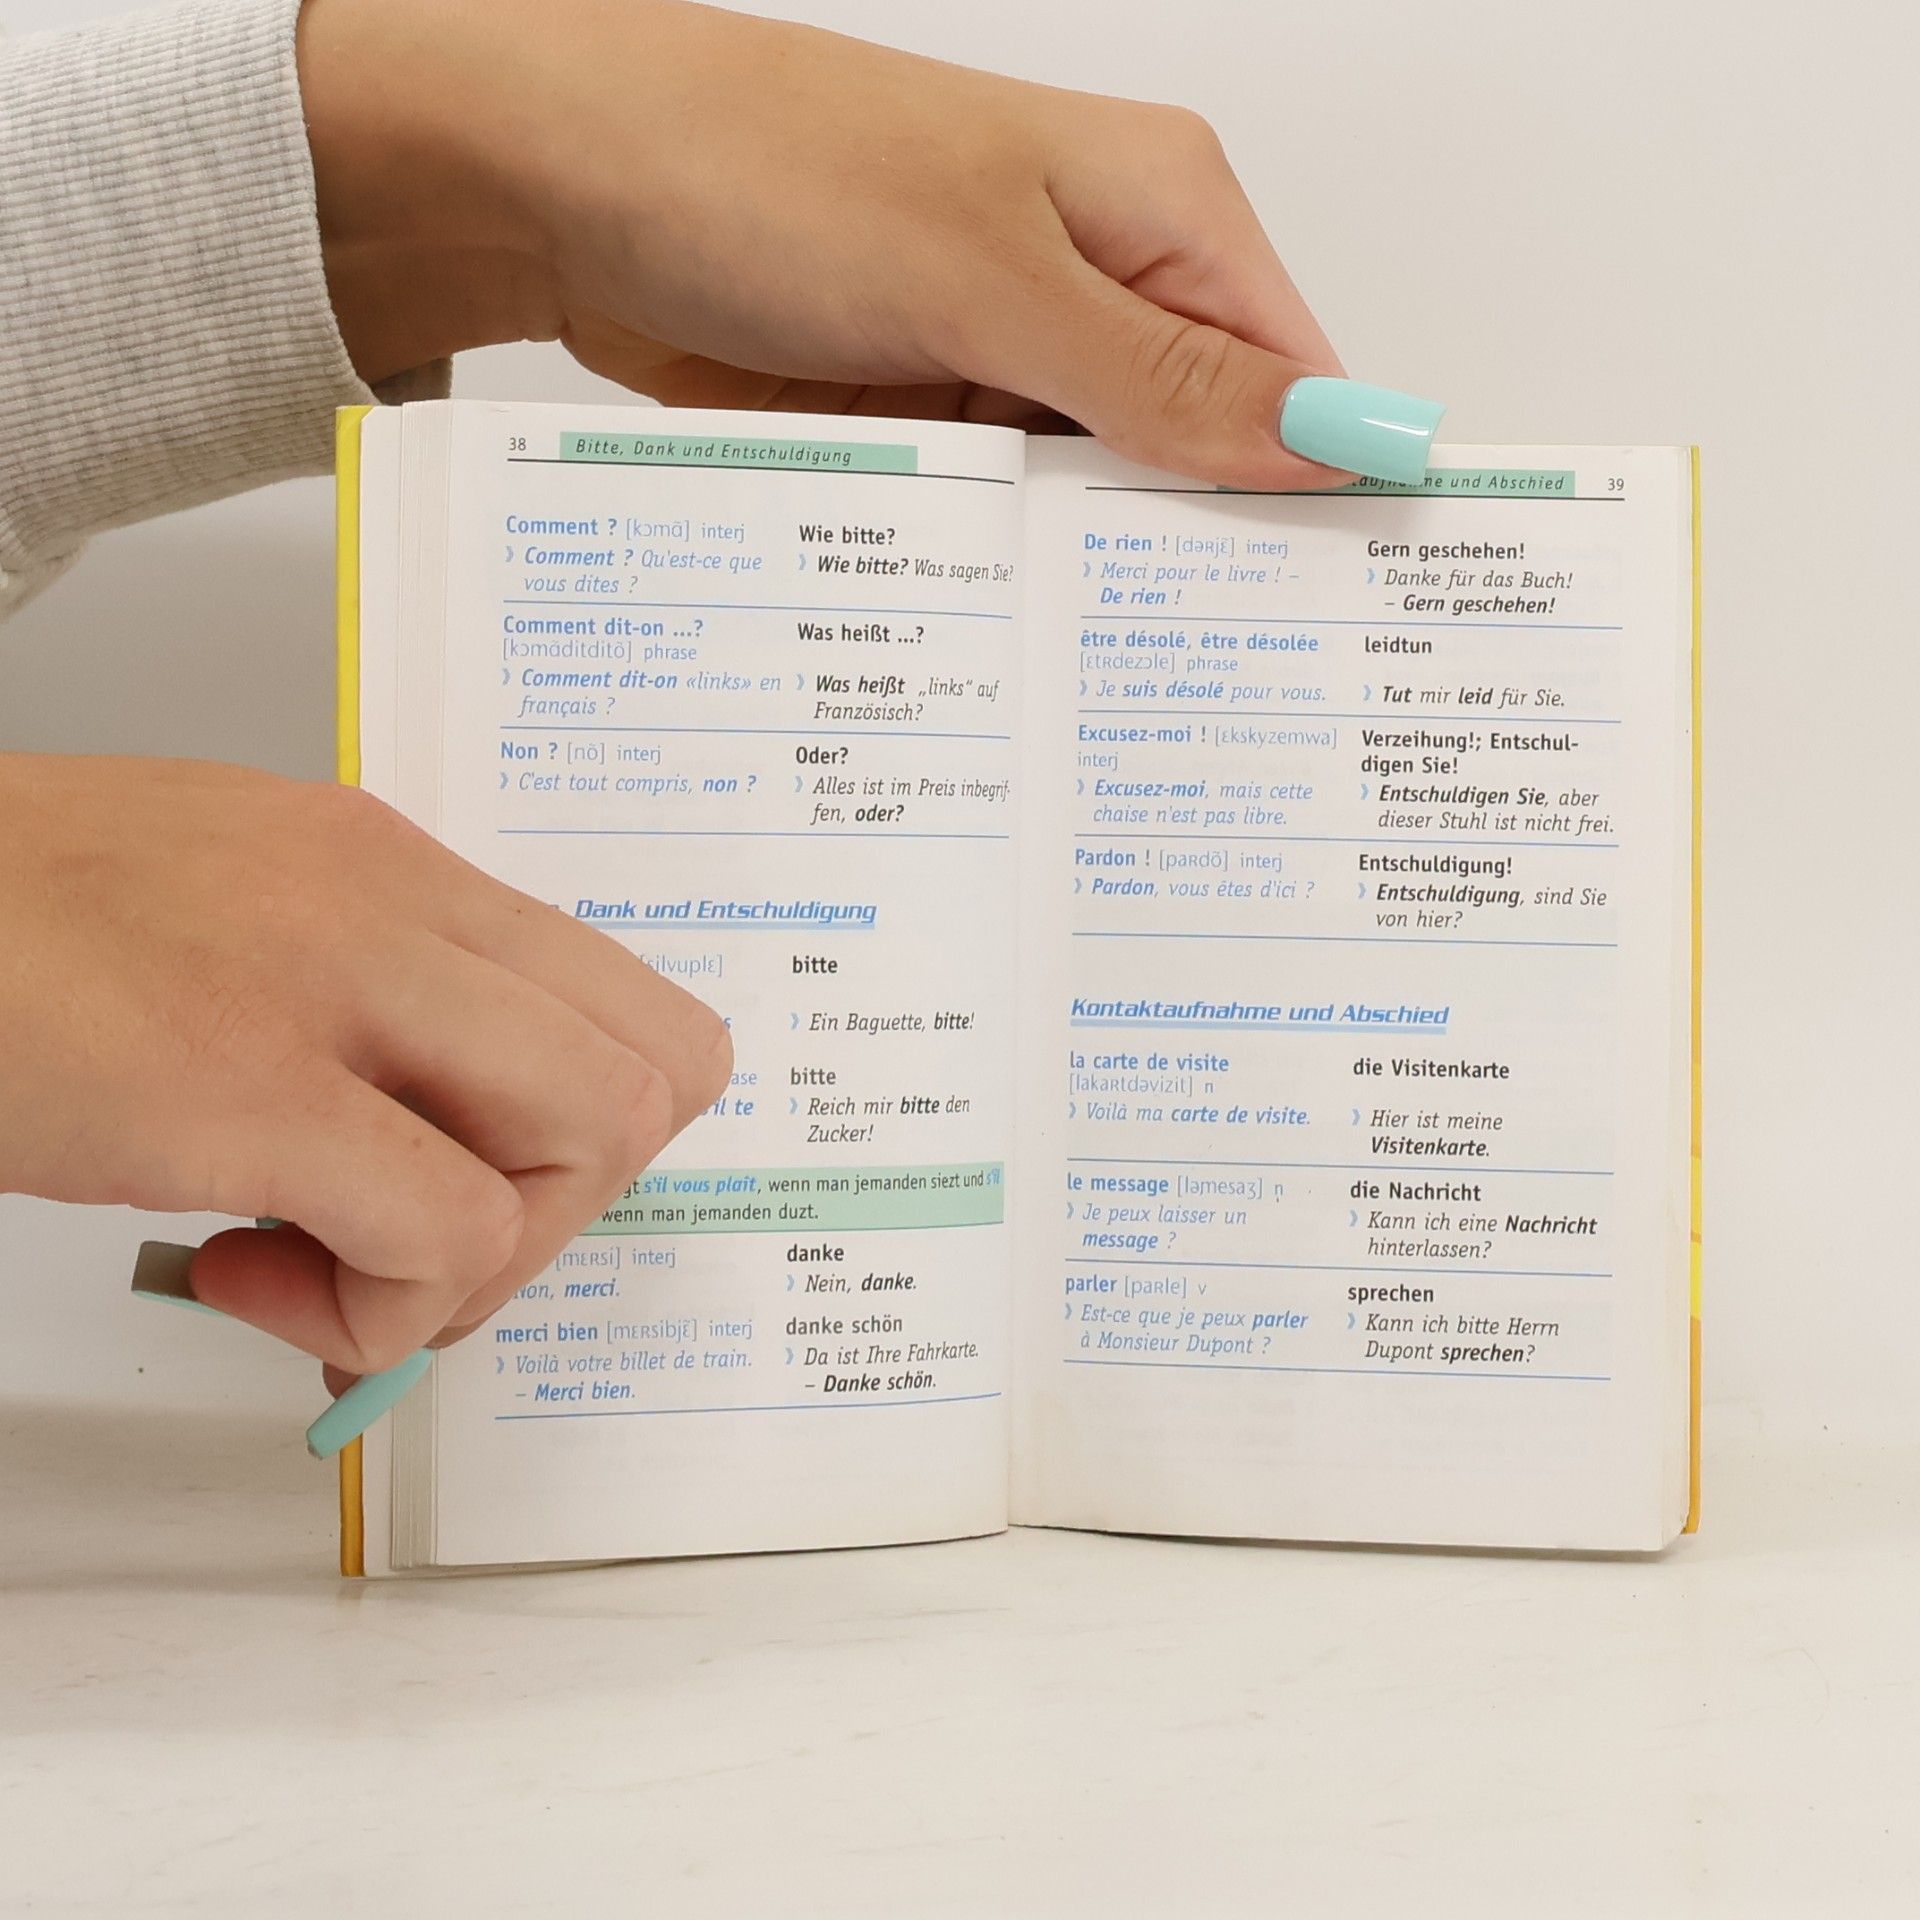 38 Bitte, Dank und Entschuldigung
Comment ? [kɔmã] interj
❯ Comment ? Qu'est-ce que
vous dites ?
Wie bitte?
❯ Wie bitte? Was sagen Sie?
Comment dit-on ...?
[kɔmãditditõ] phrase
❯ Comment dit-on «links» en
français ?
Was heißt ...?
❯ Was heißt „links“ auf
Französisch?
Non ? [nõ] interj
❯ C'est tout compris, non ?
Oder?
❯ Alles ist im Preis inbegrif-
fen, oder?
Dank und Entschuldigung
[silvuplɛ]
bitte
❯ Ein Baguette, bitte!
il te
bitte
❯ Reich mir bitte den
Zucker!
s'il vous plaît, wenn man jemanden siezt und s'il
wenn man jemanden duzt.
[mɛʀsi] interj
merci.
danke
❯ Nein, danke.
merci bien [mɛʀsibjɛ̃] interj
❯ Voilà votre billet de train.
– Merci bien.
danke schön
❯ Da ist Ihre Fahrkarte.
– Danke schön.
und Abschied 39
De rien ! [dəʀjɛ̃] interj
❯ Merci pour le livre ! –
De rien !
Gern geschehen!
❯ Danke für das Buch!
– Gern geschehen!
être désolé, être désolée
[ɛtʀdezɔle] phrase
❯ Je suis désolé pour vous.
leidtun
❯ Tut mir leid für Sie.
Excusez-moi ! [ɛkskyzemwa]
interj
❯ Excusez-moi, mais cette
chaise n'est pas libre.
Verzeihung!; Entschul-
digen Sie!
❯ Entschuldigen Sie, aber
dieser Stuhl ist nicht frei.
Pardon ! [paʀdõ] interj
❯ Pardon, vous êtes d'ici ?
Entschuldigung!
❯ Entschuldigung, sind Sie
von hier?
Kontaktaufnahme und Abschied
la carte de visite
[lakaʀtdəvizit] n
❯ Voilà ma carte de visite.
die Visitenkarte
❯ Hier ist meine
Visitenkarte.
le message [ləmesaʒ] n
❯ Je peux laisser un
message ?
die Nachricht
❯ Kann ich eine Nachricht
hinterlassen?
parler [paʀle] v
❯ Est-ce que je peux parler
à Monsieur Dupont ?
sprechen
❯ Kann ich bitte Herrn
Dupont sprechen?